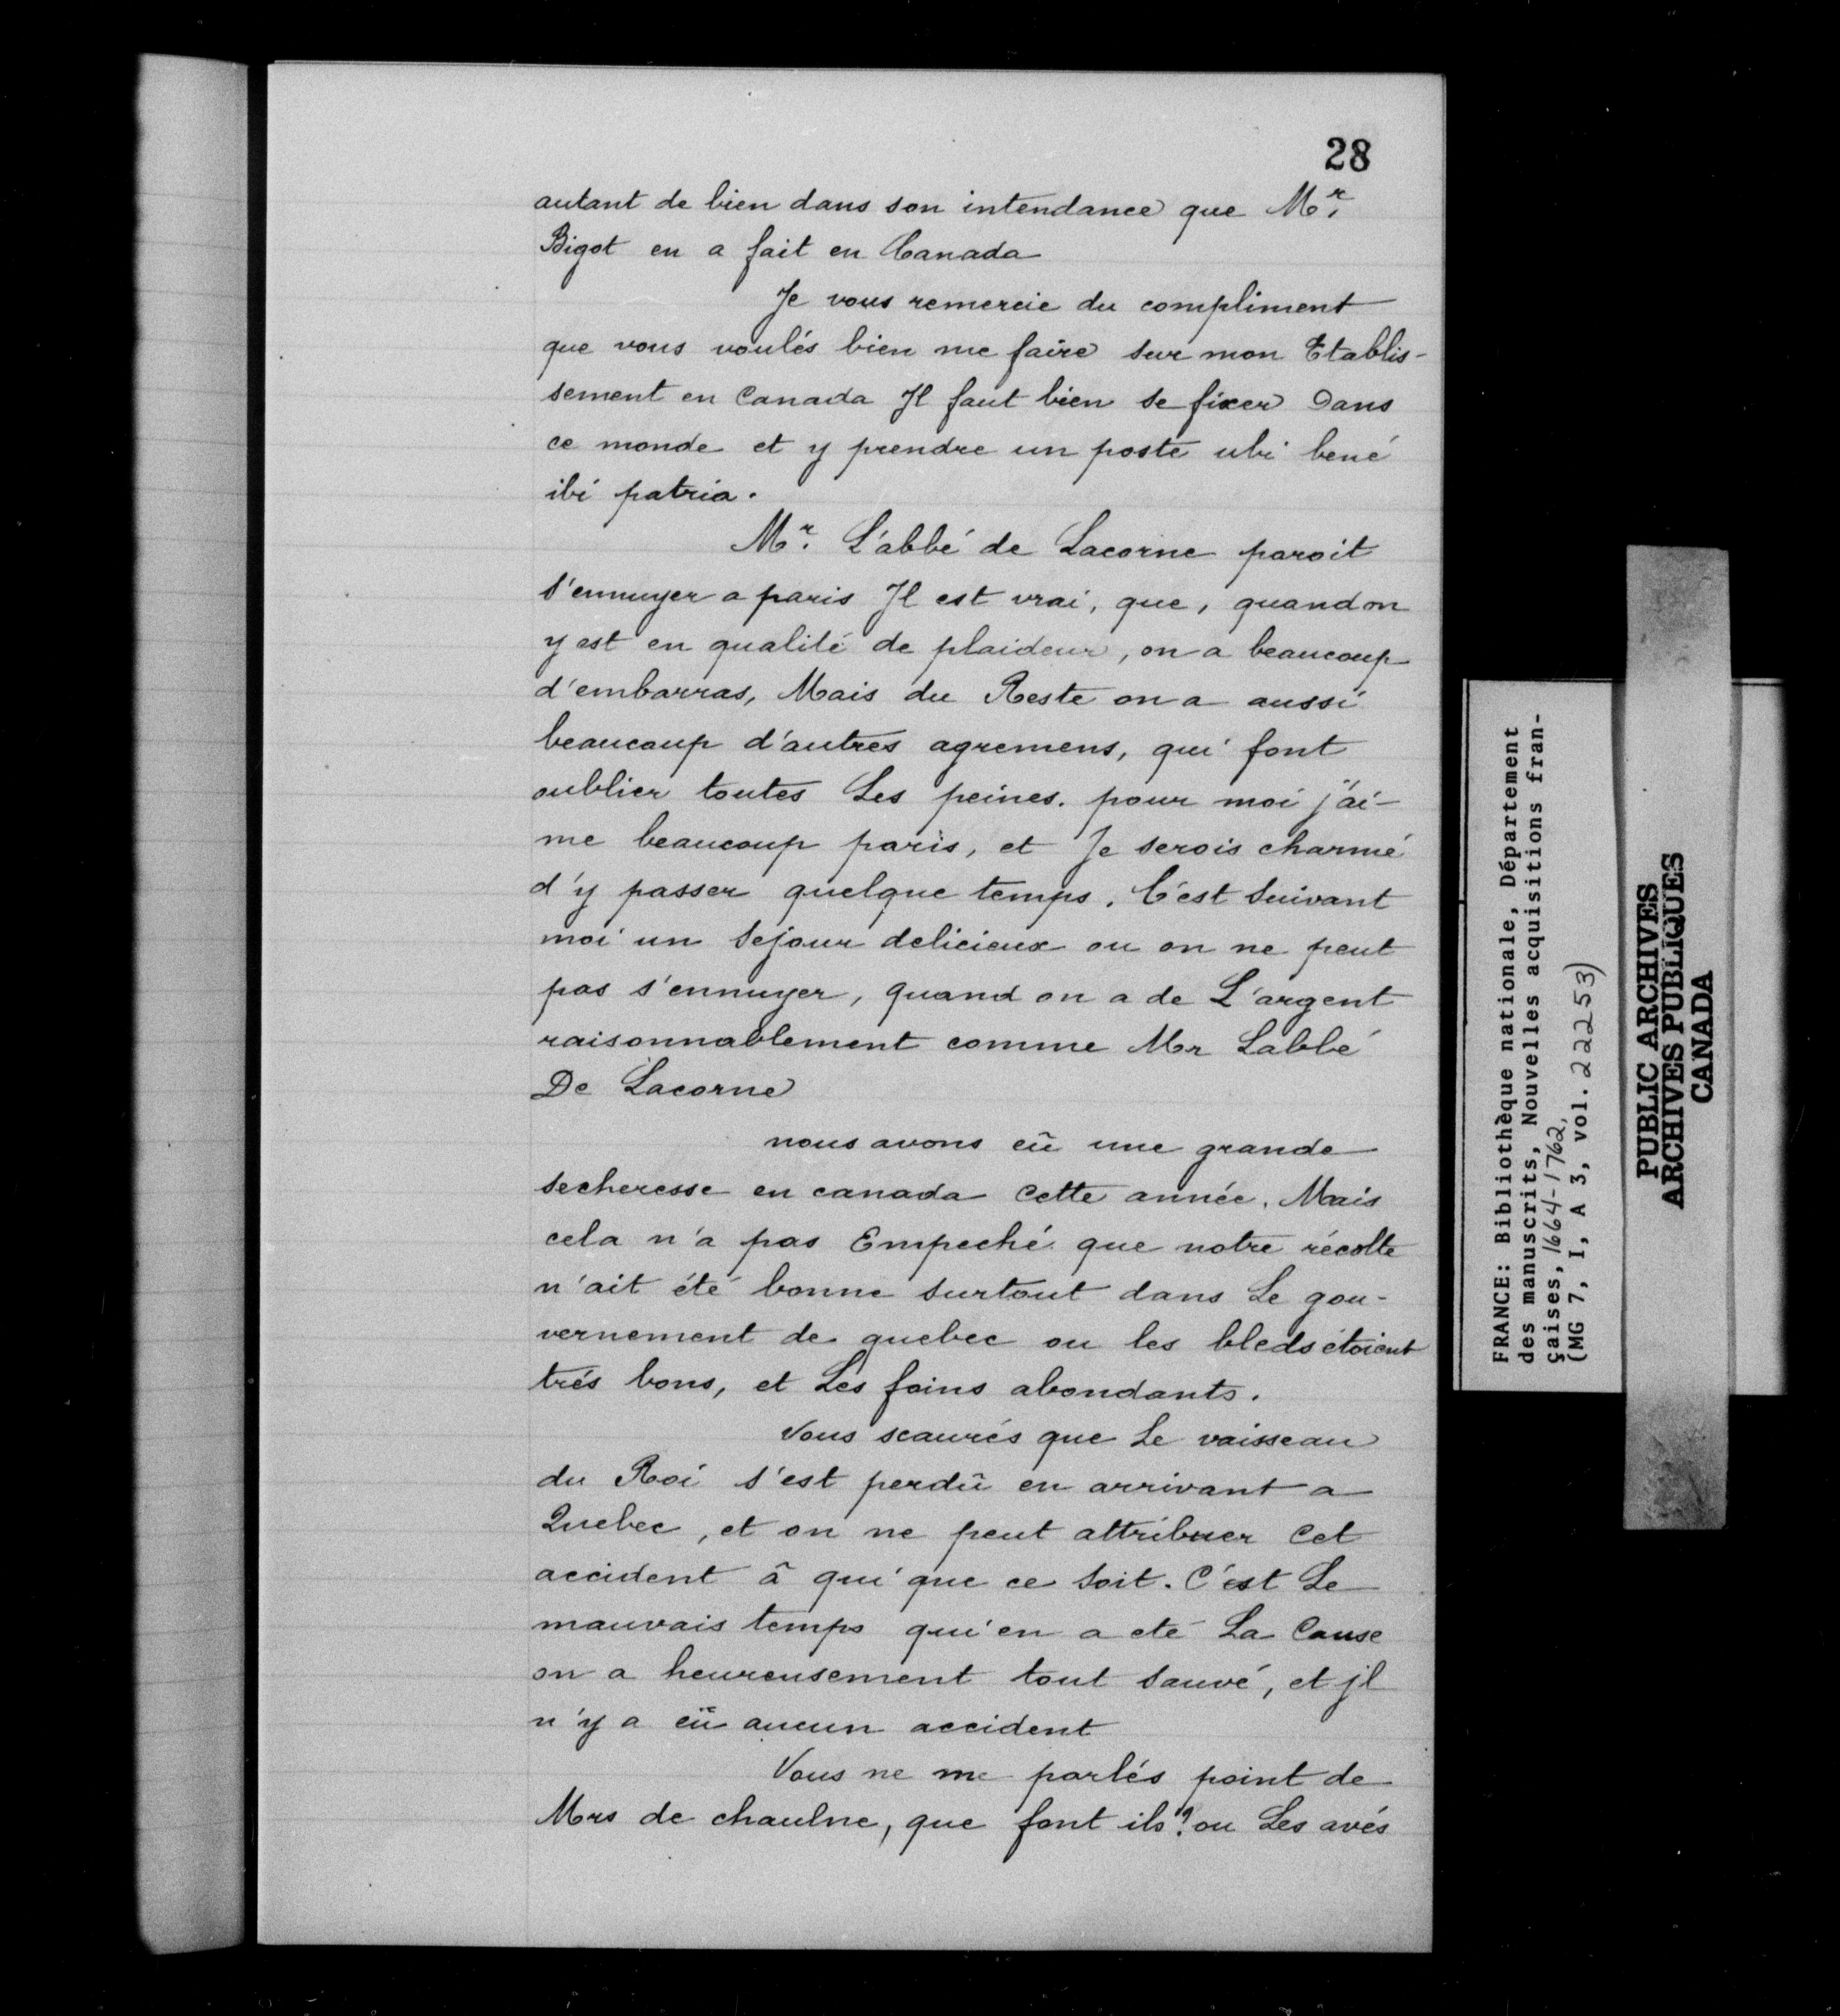 28
autant de bien dans son intendance que Mr.
Bigot en a fait en Canada
Je vous remercie du compliment
que vous voulés bien me faire sur mon Etablis-
sement en Canada Il faut bien se fixer Dans
ce monde et y prendre un poste ubi bené
ibi patria.
Mr. L'abbé de Lacorne paroit
s'ennuyer a paris Il est vrai, que, quand on
y est en qualité de plaideur, on a beaucoup
d'embarras, Mais du Reste on a aussi
beaucoup d'autres agremens, qui font
oublier toutes Les peines. pour moi j'ai-
me beaucoup paris, et Je serois charmé
d'y passer quelque temps. C'est suivant
moi un sejour delicieux ou on ne peut
pas s'ennuyer, quand on a de L'argent
raisonnablement comme Mr Labbé
De Lacorne
nous avons eû une grande
secheresse en canada cette année. Mais
cela n'a pas Empeché que notre récolte
n'ait été bonne surtout dans Le gou-
vernement de quebec ou les bleds étoient
trés bons, et Les foins abondants.
Vous scaurés que Le vaisseau
du Roi s'est perdû en arrivant a
Quebec, et on ne peut attribuer cet
accident â qui que ce soit. C'est Le
mauvais temps qui en a eté La Cause
on a heureusement tout sauvé, et jl
n'y a eû aucun accident
Vous ne me parlés point de
Mrs de chaulne, que font ils? ou Les avés
FRANCE: Bibliothèque nationale, Département
des manuscrits, Nouvelles acquisitions fran-
çaises, 1664-1762,
(MG 7, I, A 3, vol. 22253)
PUBLIC ARCHIVES
ARCHIVES PUBLIQUES
CANADA